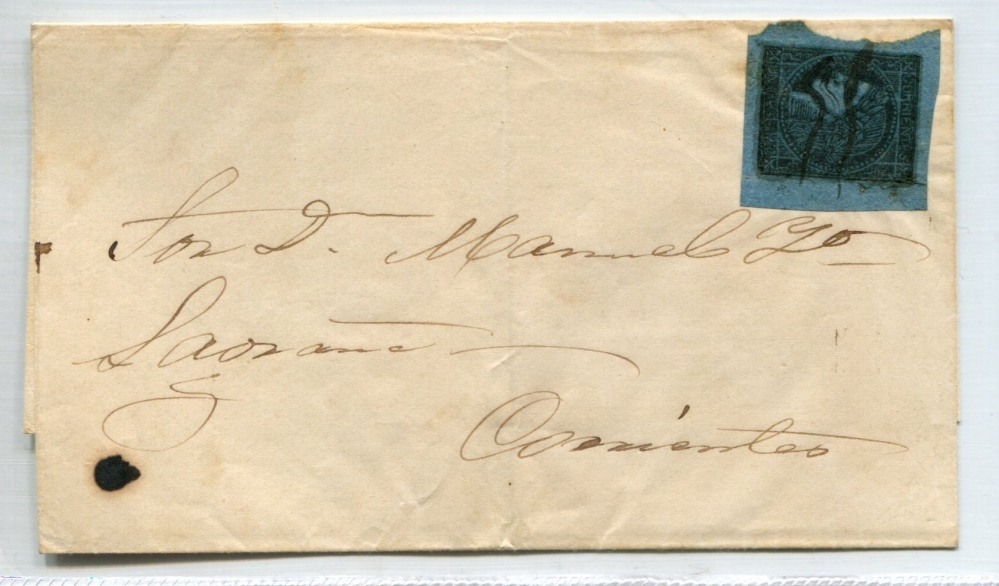 Sor D. Manuel Yo
Lagraña
Corrientes